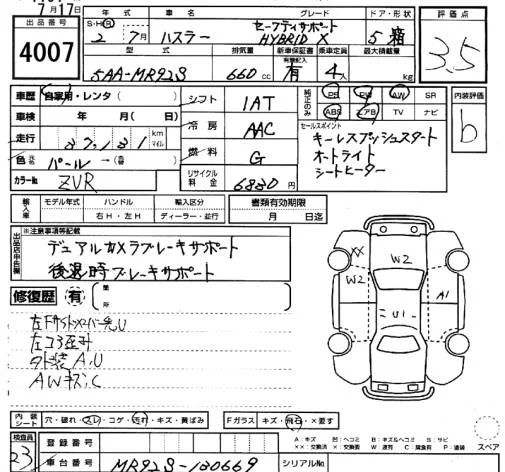 7月17日
出品番号 4007
年式 車名 グレード ドア・形状 評価点
S・H・R 2 7月 ハスラー セーフティサポート HYBRID X 5 箱 3.5
型式 排気量 新車保証書 乗車定員 最大積載量
5AA-MR92S 660cc 有 4人 kg
車歴 自家用・レンタ( ) シフト IAT 純正のみ PS PW AW SR 内装評価
車検 年 月( 日) ABS エアB TV ナビ b
走行 37,131 km マイル 冷房 AAC セールスポイント
キーレスプッシュスタート
色 パール→ 燃料 G オートライト
カラーNo. ZVR リサイクル料金 6830円 シートヒーター
輸入車 モデル年式 ハンドル 輸入区分 書類有効期限
右H・左H ディーラー・並行 月 日迄
出品店申告欄 ※注意事項等記載
デュアルカメラブレーキサポート
後退時ブレーキサポート
修復歴 有 箇所
外装A,U
AWキズ,C
XX W2 W2 A1 U1
内装シート 穴・破れ・スレ・コゲ・汚れ・キズ・黄ばみ Fガラス キズ・飛石・×要す
A:キズ 凹:ヘコミ B:キズ&ヘコミ S:サビ
××:交換済 ×:要交換 W:波判 C:腐食有 P:塗装 スペア
検査員 23 登録番号
車台番号 MR92S-130669 シリアルNo.